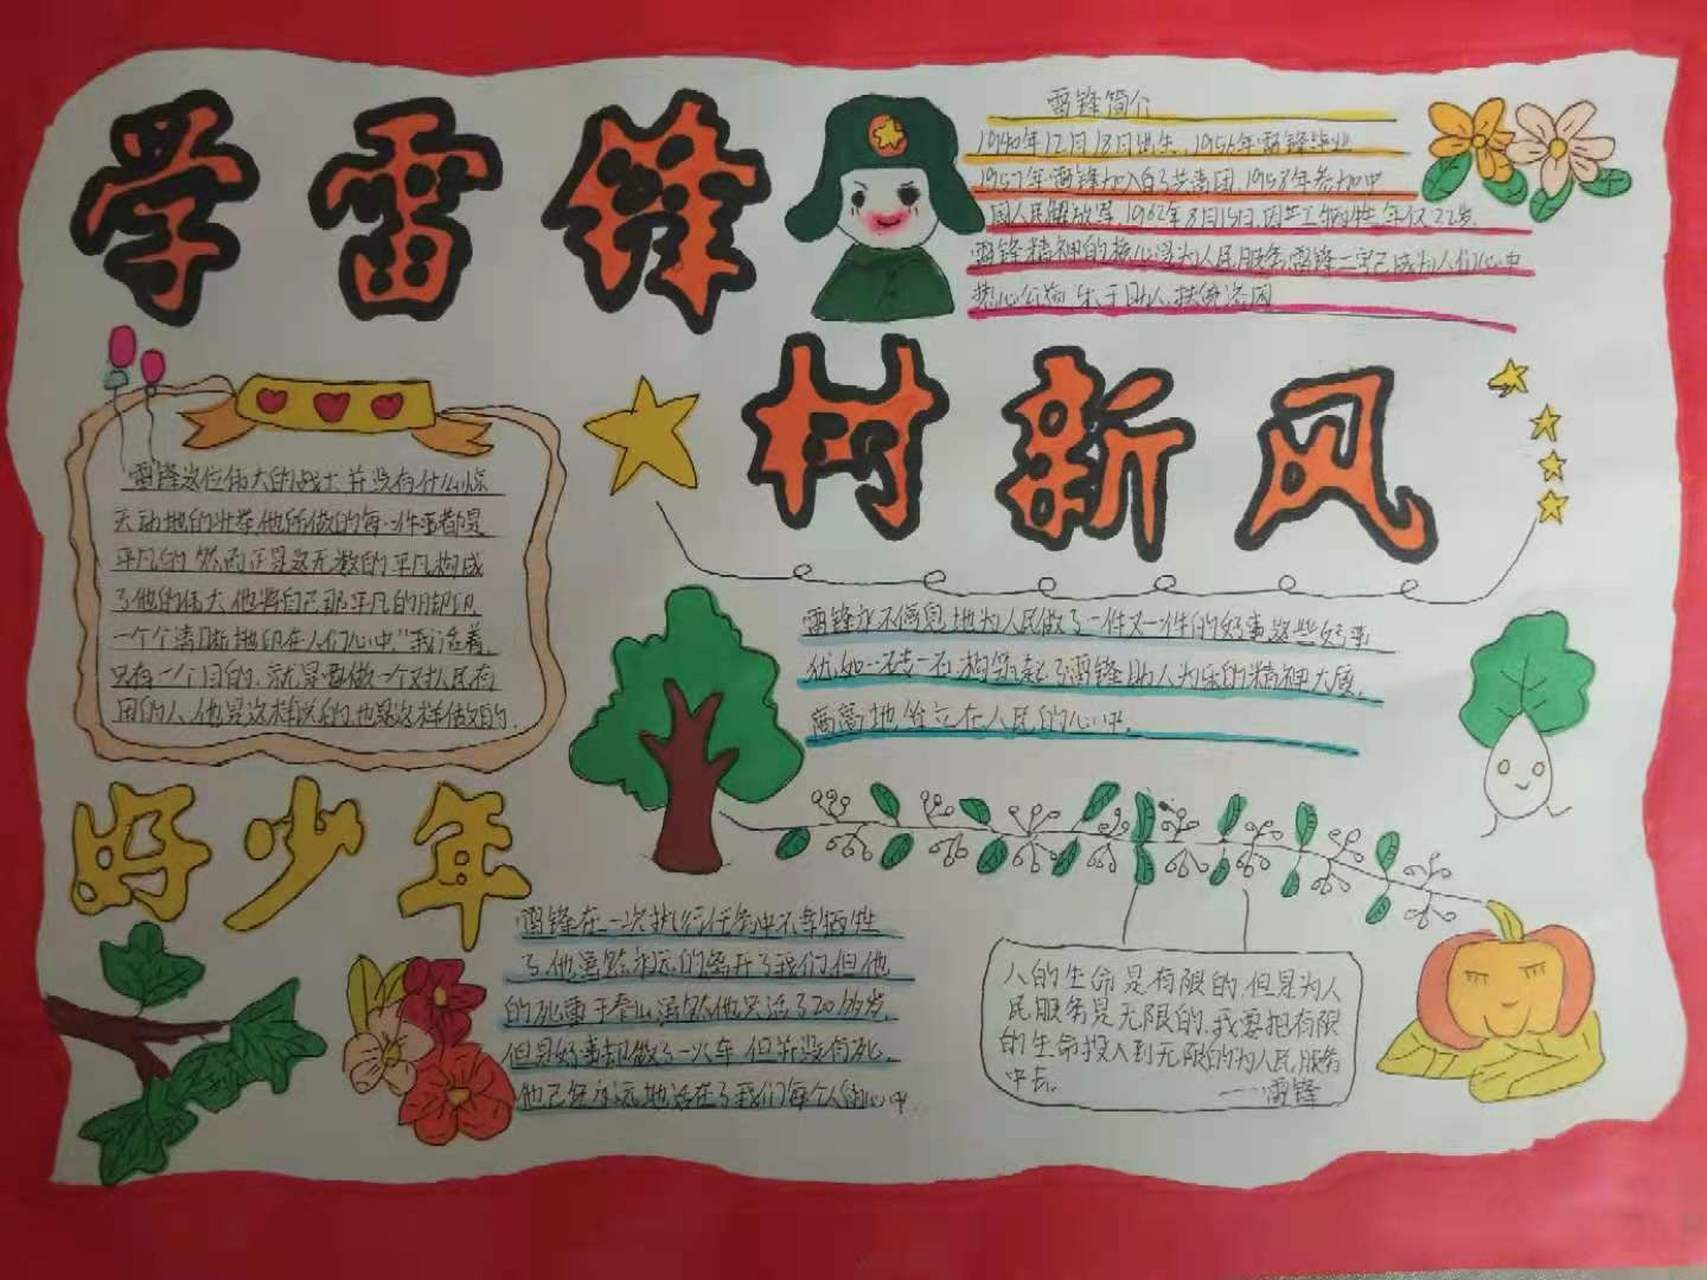 学雷锋
雷锋简介
1940年12月18日出生,1956年雷锋毕业
1957年雷锋加入了共青团,1958年参加中
国人民解放军,1962年8月15日,因公牺牲,年仅22岁.
雷锋精神的核心是为人民服务,雷锋二字已成为人们心中
热心公益,乐于助人,扶贫济困
树新风
雷锋这位伟大的战士并没有什么惊
天动地的壮举,他所做的每一件事都是
平凡的,然而正是这无数的平凡构成
了他的伟大,他将自己那平凡的脚印
一个个清晰地印在人们心中."我活着,
只有一个目的,就是要做一个对人民有
用的人,他是这样说的,也是这样做的.
雷锋永不停息地为人民做了一件又一件的好事,这些好事
优如一砖一石,构筑起了雷锋助人为乐的精神大厦,
高高地耸立在人民的心中.
好少年
雷锋在一次执行任务中不幸牺牲
了,他虽然永远的离开了我们,但他
的死重于泰山,虽然他只活了20多岁,
但是好事却做了一火车,但并没有死,
他已经永远地活在了我们每个人的心中.
人的生命是有限的,但是为人
民服务是无限的,我要把有限
的生命投入到无限的为人民服务
中去。
——雷锋